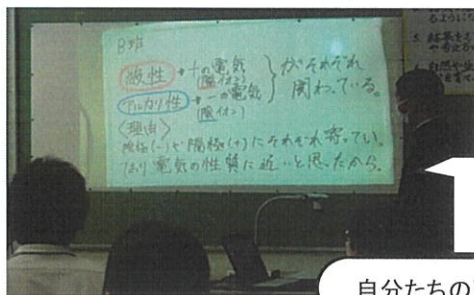 B班
酸性 +の電気
(陽イオン)
アルカリ性 -の電気
(陰イオン)
がそれぞれ
関わっている。
〈理由〉
陰極(-)や陽極(+)にそれぞれ寄ってい
おり電気の性質に近いと思ったから。
自分たちの